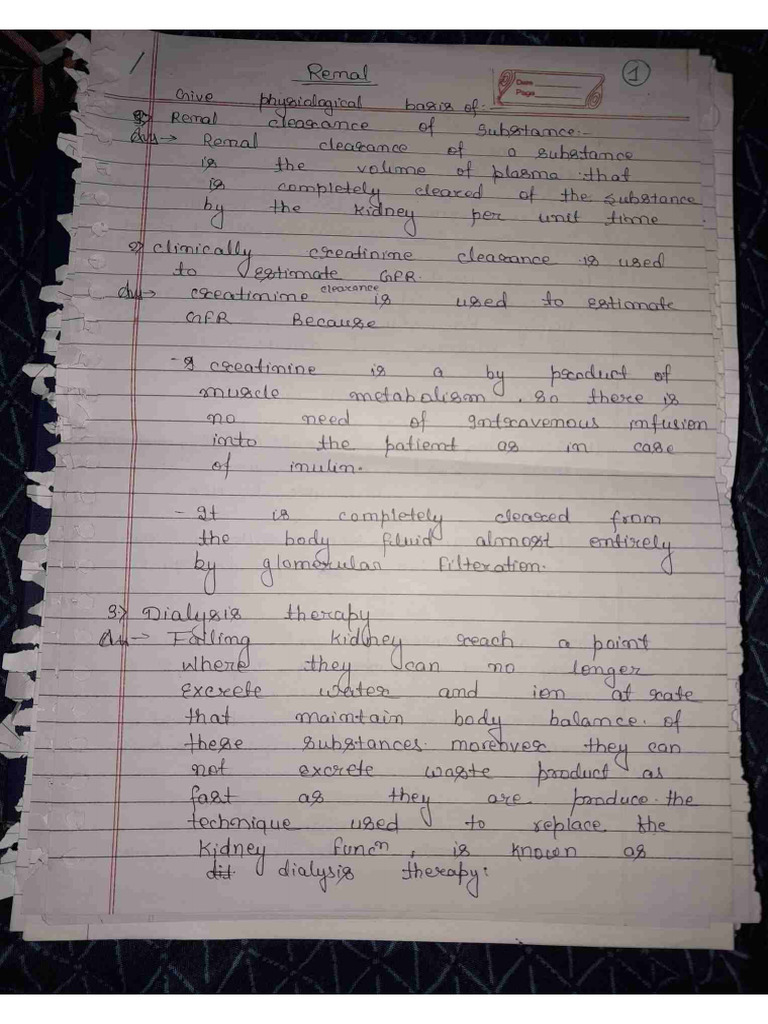 Renal
Date
Page
1
Give physiological basis of:-
1) Renal clearance of substance:-
Ans → Renal clearance of a substance
is the volume of plasma that
is completely cleared of the substance
by the kidney per unit time.
2) clinically creatinine clearance is used
to estimate GFR.
Ans → creatinine clearance is used to estimate
GFR Because
- creatinine is a by product of
muscle metabolism, so there is
no need of Intravenous infusion
into the patient as in case
of inulin.
- It is completely cleared from
the body fluid almost entirely
by glomerular Filteration.
3) Dialysis therapy
Ans → Failing kidney reach a point
where they can no longer
excrete water and ion at rate
that maintain body balance of
these substances. moreover they can
not excrete waste product as
fast as they are produce. the
technique used to replace the
kidney funcn, is known as
dialysis therapy: